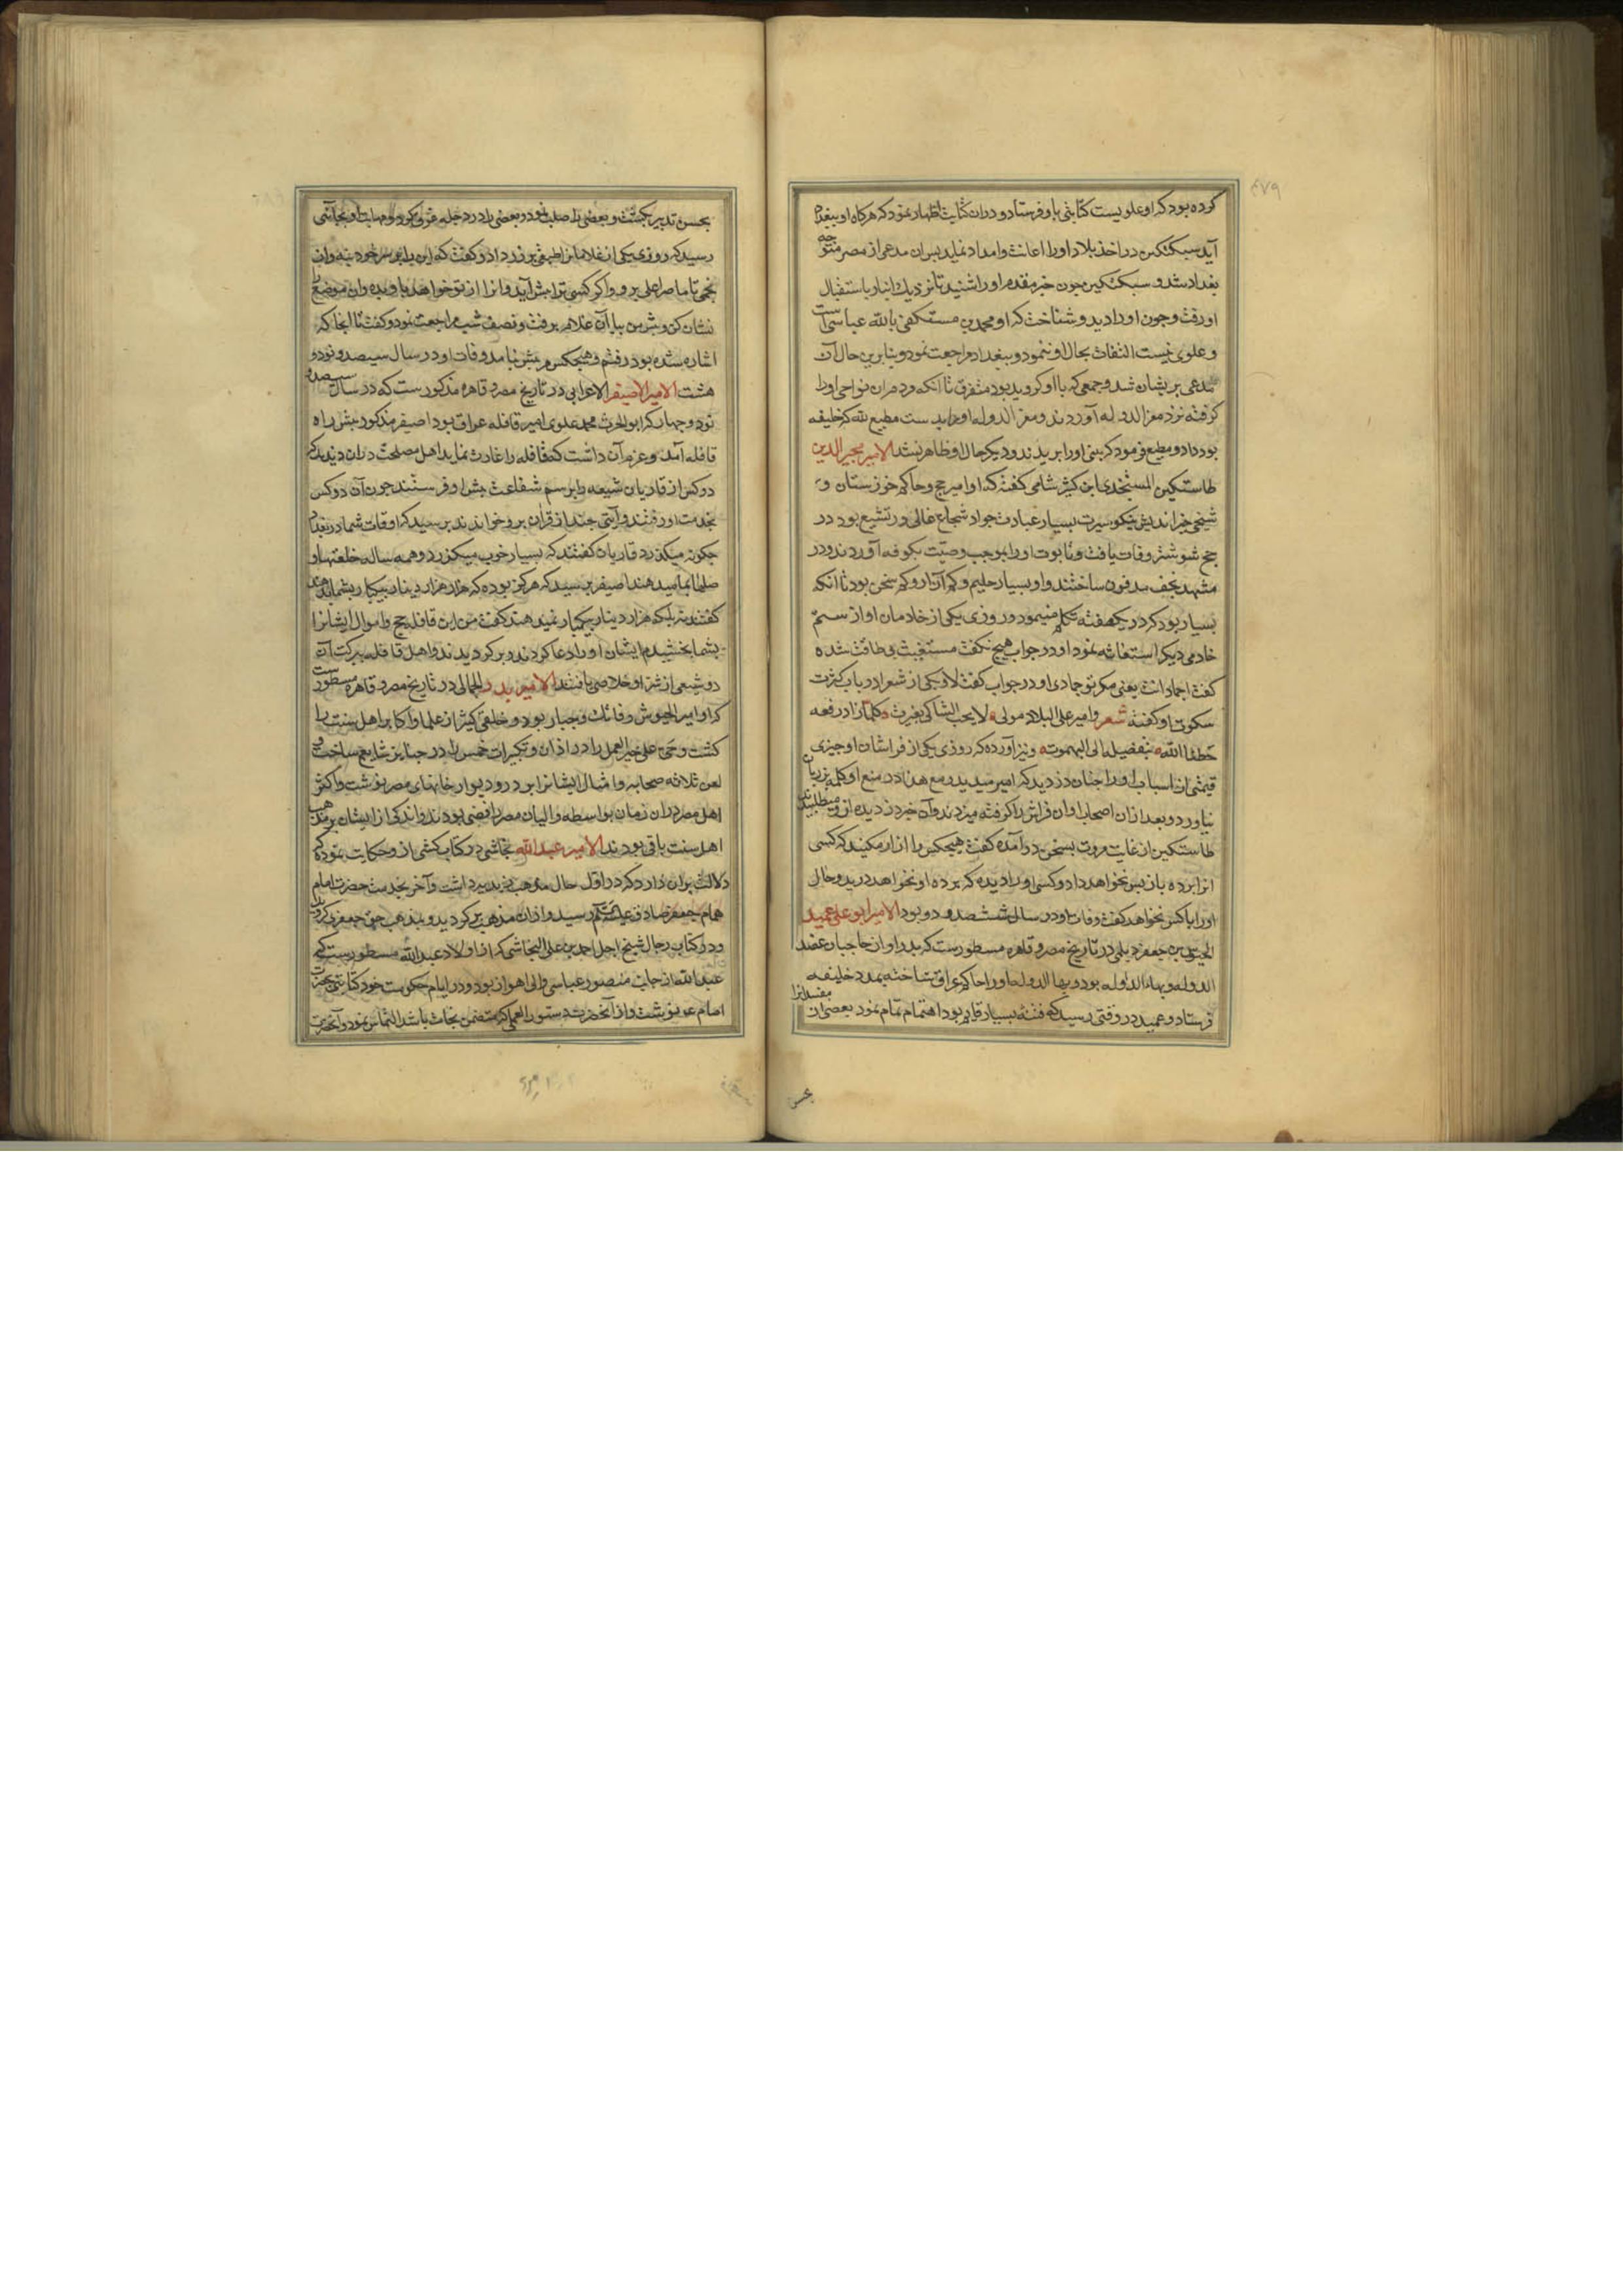 ۴۷۹
کرده بود که او علویست کتابتی باو فرستاد و دران کتابت اظهار نمود که هرکاه او ببغداد
آید سبکتکین در اخذ بلاد او را اعانت و امداد نماید بس ان مدعی از مصر متوجه
بغداد شد و سبکتکین جون خبر مقدم او را شنید تا نزدیک انبار باستقبال
او رفت و جون او را دید و شناخت که او محمد بن مستکفی بالله عباسی است
و علوی نیست التفات بحال او ننمود و ببغداد مراجعت نمود و بنابرین حال آن
مدعی بریشان شد و جمعی که با او کرویده بود متفرق تا انکه مردمان نواحی او را
کرفته نزد معز الدوله آوردند و معز الدوله او را بدست مطیع لله که خلیفه
بود داد و مطیع فرمود که بینی او را بریدند و دیکر حال او ظاهر نشد الامیر مجیر الدین
طاستکین المستنجدی ابن کثیر شامی کفته که او امیر حج و حاکم خوزستان و
شیخی خیر اندیش نیکو سیرت بسیار عبادت جواد شجاع غالی در تشیع بود در
شوشتر وفات یافت و تابوت او را بموجب وصیت بکوفه آوردند و در
مشهد نجف مدفون ساختند و او بسیار حلیم و کم آزار و کم سخن بود تا انکه
بسیار بود که در یکهفته تکلم نمینمود و روزی یکی از خادمان او از ستم
خادمی دیکر استغاثه نمود او در جواب هیچ نکفت مستغیث بی طاقت شده
کفت اجماد انت یعنی مکر تو جمادی او در جواب کفت لا و یکی از شعرا در باب کثرت
سکوت او کفته شعر و امیر علی البلاد مولی لا یجیب الشاکی بغیر السکوت کلما زاد رفعه
حطنا الله بتفضیله الی البهموت و نیز آورده که روزی یکی از فراشان او چیزی
قیمتی از اسباب او را جنان دزدید که امیر میدید و مع هذا در منع او کلمه بزبان
نیاورد و بعد ازان اصحاب او ان فراش را کرفته میزدند و آن جیز دزدیده از و میطلبیدند
طاستکین از غایت مروت بسخن در آمده کفت هیچکس را ازار مکنید که کسی
انرا برده باز بس نخواهد داد و کسی او را دیده که برده او نخواهد درید و حال
او را با کس نخواهد کفت وفات او در سال ششصد و دو بود الامیر ابو علی عمید
الجیوش بن جعفر دیلمی در تاریخ مصر و قاهره مسطورست که بدر او از حاجبان عضد
الدوله و بهاء الدوله بود و بهاء الدوله او را حاکم عراق ساخته بمدد خلیفه
فرستاد و عمید در وقتی رسید که فتنه بسیار قایم بود اهتمام تمام نمود بعضی ان مفسدانرا
بحسن
بحسن تدبیر بکشت و بعضی را صلب نمود و بعضی را در دجله غرق کرد و مهابت او بجائی
رسید که روزی یکی از غلامان طبقی بر زر داد و کفت که این را بر سر خود بنه و از
نجمی تا ماصر اعلی برو و اکر کسی ترا پیش آید و انرا از تو خواهد باو بده و ان موضع را
نشان کن و پیش من بیا آن غلام برفت و نصف شب مراجعت نمود و کفت تا انجا که
اشاره شده بود رفتم و هیچکس مرا پیش نیامد وفات او در سال سیصد و نود و
هشت الامیر الاصیفر الاعرابی در تاریخ مصر و قاهره مذکورست که در سال سیصد و
نود و جهار که ابو الحرث محمد علوی امیر قافله عراق بود اصیفر مذکور بیش راه
قافله آمد و عزم آن داشت که قافله را غارت نماید اهل مصلحت دران دیدند که
دو کس از قاریان شیعه را برسم شفاعت بیش او فرستند جون آن دو کس
بخدمت او رفتند و آیتی چند از قران برو خواندند برسید که اوقات شما در بغداد
چکونه میکذرد قاریان کفتند که بسیار خوب میکذرد و همه ساله خلعتها و
صلها بما میدهند اصیفر برسید که هرکز بوده که هزار هزار دینار بیکبار بشما بدهند
کفتند نه بلکه هزار دینار بیکبار نمیدهند کفت من این قافله حج و اموال ایشانرا
بشما بخشیدم ایشان او را دعا کردند و برکردیدند و اهل قافله ببرکت آن
دو شیعی از شر او خلاصی یافتند الامیر بدر الجمالی در تاریخ مصر و قاهره مسطورست
که او امیر الجیوش و فاتک و جبار بود و خلقی کثیر از علما و اکابر اهل سنت را
کشت و حی علی خیر العمل را در اذان و تکبیرات خمس را در جنایز شایع ساخت و
لعن ثلاثه صحابه و امثال ایشانرا بر در و دیوار خانهای مصر نوشت و اکثر
اهل مصر دران زمان بواسطه والیان مصر رافضی بودند و اندکی از ایشان بر مذهب
اهل سنت باقی بودند الامیر عبدالله نجاشی در کتاب کشی از و حکایت نموده که
دلالت بران دارد که در اول حال مذهب زیدیه داشت و آخر بخدمت حضرت امام
همام جعفر صادق علیه السلام رسید و ازان مذهب برکردید و بمذهب حق جعفری کروید
و در کتاب رجال شیخ اجل احمد بن علی النجاشی که از اولاد عبدالله مسطورست که
عبدالله از جانب منصور عباسی والی اهواز بود و در ایام حکومت خود کتابتی بحضرت
امام ع نوشت و از آنحضرت دستور العملی که متضمن نجات باشد التماس نمود و آنحضرت